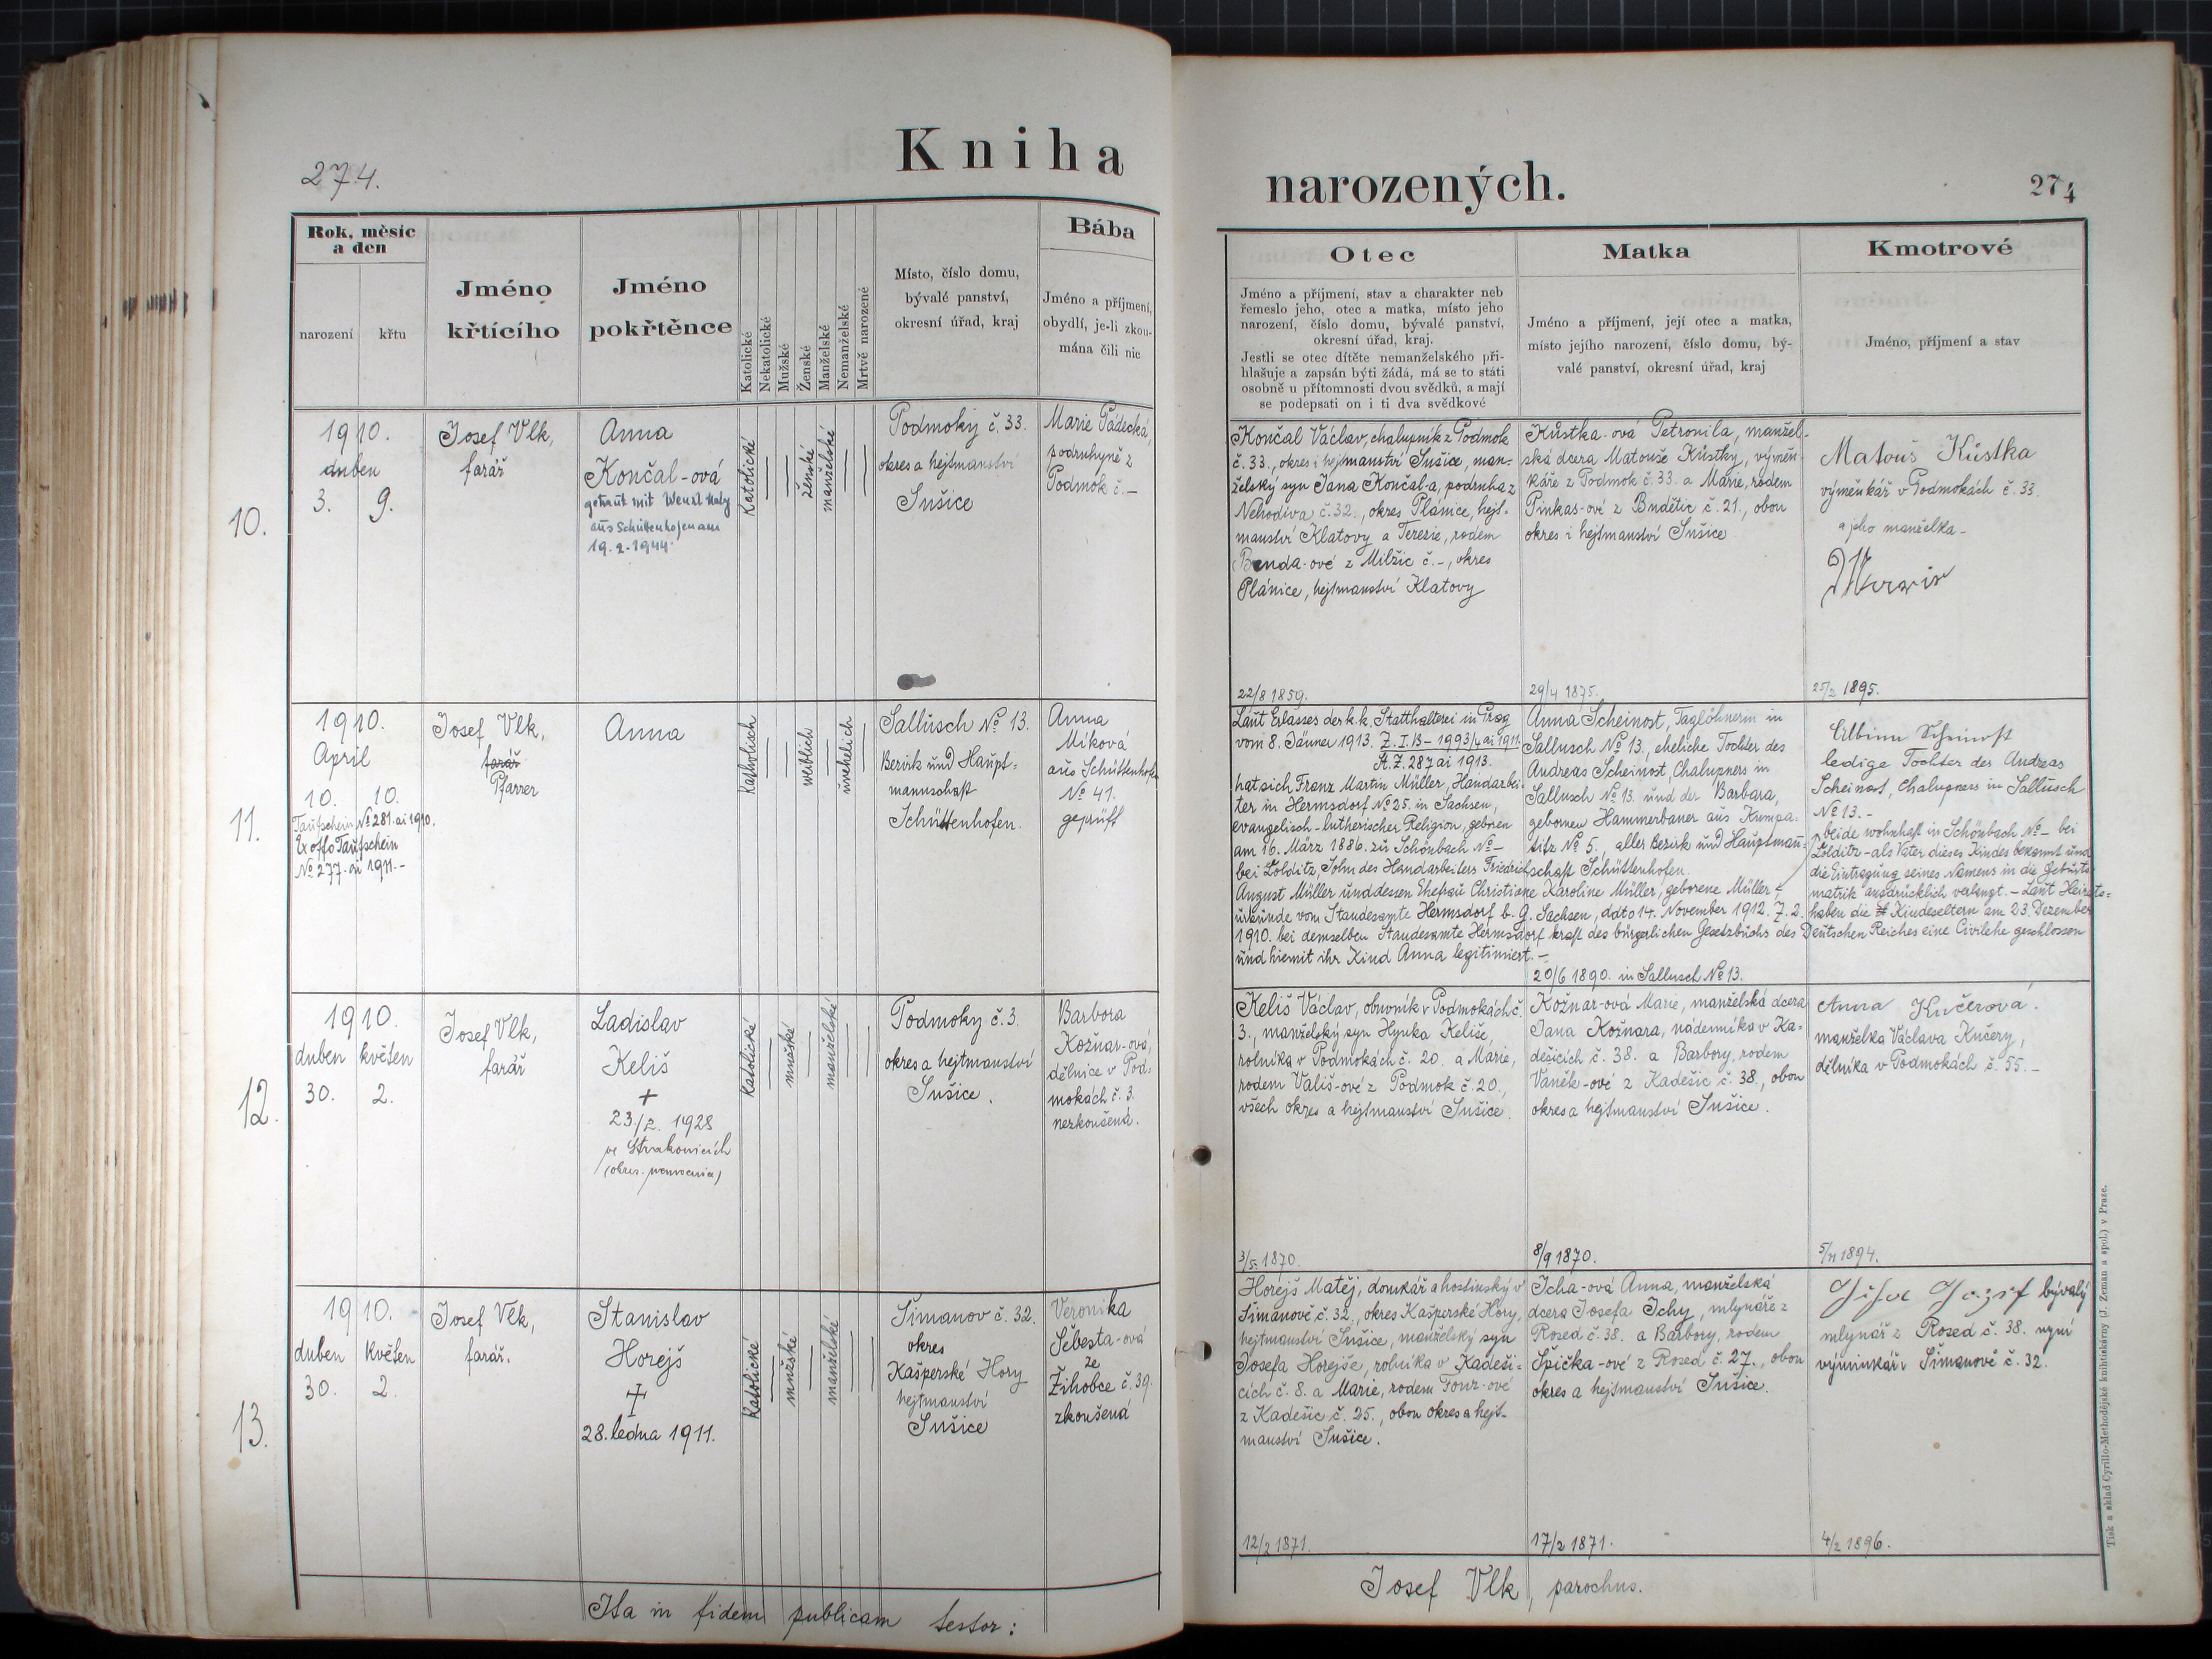 274.
Kniha
Rok, měsíc
a den
narození
křtu
Jméno
křtícího
Jméno
pokřtěnce
Katolické
Nekatolické
Mužské
Ženské
Manželské
Nemanželské
Mrtvě narozené
Místo, číslo domu,
bývalé panství,
okresní úřad, kraj
Bába
Jméno a příjmení,
obydlí, je-li zkou-
mána čili nic
10.
1910.
duben
3. 9.
Josef Vlk,
farář
Anna
Končal-ová
getraut mit Wenzl
aus Schüttenhofen am
19.2.1944
Katolické
ženské
manželské
Podmoky č. 33.
okres a hejtmanství
Sušice
Marie Pádecká,
podruhyně z
Podmok č. –
11.
1910.
April
10. 10.
Taufschein No 281. ai 1910.
Ex offo Taufschein
No 277. ai 1911.-
Josef Vlk,
farář
Pfarrer
Anna
Katholisch
weiblich
unehelich
Sallusch No 13.
Bezirk und Haupt=
mannschaft
Schüttenhofen.
Anna
Míková
aus Schüttenhofen
No 41.
geprüft
12.
1910.
duben květen
30. 2.
Josef Vlk,
farář
Ladislav
Keliš
+
23./2. 1928
ve Strakonicích
(okres. nemocnice)
Katolické
mužské
manželské
Podmoky č. 3.
okres a hejtmanství
Sušice.
Barbora
Kožnar-ová,
dělnice v Pod-
mokách č. 3.
nezkoušená.
13.
1910.
duben Květen
30. 2.
Josef Vlk,
farář.
Stanislav
Horejš
28. ledna 1911.
Katolické
mužské
manželské
Šimanov č. 32.
okres
Kašperské Hory
hejtmanství
Sušice
Veronika
Šebesta-ová
ze
Žihobce č. 39.
zkoušená
Ita in fidem publicam testor:
narozených.
274
Otec
Jméno a příjmení, stav a charakter neb
řemeslo jeho, otec a matka, místo jeho
narození, číslo domu, bývalé panství,
okresní úřad, kraj.
Jestli se otec dítěte nemanželského při-
hlašuje a zapsán býti žádá, má se to státi
osobně u přítomnosti dvou svědků, a mají
se podepsati on i ti dva svědkové
Matka
Jméno a příjmení, její otec a matka,
místo jejího narození, číslo domu, bý-
valé panství, okresní úřad, kraj
Kmotrové
Jméno, příjmení a stav
Končal Václav, chalupník z Podmok
č. 33., okres i hejtmanství Sušice, man-
želský syn Jana Končal-a, podruha z
Nehodiva č. 32., okres Plánice, hejt-
manství Klatovy a Terezie, rodem
Benda-ové z Milžic č. –, okres
Plánice, hejtmanství Klatovy
22/8 1859.
Kůstka-ová Petronila, manžel-
ská dcera Matouše Kůstky, výměn-
káře z Podmok č. 33. a Marie, rodem
Pinkas-ové z Budětic č. 21., obou
okres i hejtmanství Sušice
29/4 1875.
Matouš Kůstka
výměnkář v Podmokách č. 33.
a jeho manželka –
25/2 1895.
Laut Erlasses der k. k. Statthalterei in Prag
vom 8. Jänner 1913. Z. I. B – 1993/4 ai 1911.
St. Z. 287 ai 1913.
hat sich Franz Martin Müller, Handarbei-
ter in Hermsdorf No 25. in Sachsen,
evangelisch-lutherischer Religion, geboren
am 16. März 1886. zu Schönbach No –
bei Colditz, Sohn des Handarbeiters Friedrich
August Müller und dessen Ehefrau Christiane Karoline Müller, geborene Müller
Anna Scheinost, Taglöhnerin in
Sallusch No 13., eheliche Tochter des
Andreas Scheinost, Chalupners in
Sallusch No 13. und der Barbara,
gebornen Hammerbauer aus Kumpa-
titz No 5., aller Bezirk und Hauptmann-
schaft Schüttenhofen.
Albina Scheinost
ledige Tochter des Andreas
Scheinost, Chalupners in Sallusch
No 13.-
beide wohnhaft in Schönbach No – bei
Colditz – als Vater dieses Kindes bekannt und
die Eintragung seines Namens in die Geburts
matrik ausdrücklich verlangt. – Laut Heirats=
urkunde vom Standesamte Hermsdorf b. G. Sachsen, ddto 14. November 1912. Z. 2. haben die Kindeseltern am 23. Dezember
1910. bei demselben Standesamte Hermsdorf kraft des bürgerlichen Gesetzbuchs des Deutschen Reiches eine Civilehe geschlossen
und hiemit ihr Kind Anna legitimiert. –
20/6 1890. in Sallusch No 13.
Keliš Václav, obuvník v Podmokách č.
3., manželský syn Hynka Keliše,
rolníka v Podmokách č. 20. a Marie,
rodem Vališ-ové z Podmok č. 20.,
všech okres a hejtmanství Sušice.
3/5. 1870.
Kožnar-ová Marie, manželská dcera
Jana Kožnara, nádenníka v Ka-
dešicích č. 38. a Barbory, rodem
Vaněk-ové z Kadešic č. 38., obou
okres a hejtmanství Sušice.
8/9 1870.
Anna Kučerová.
manželka Václava Kučery,
dělníka v Podmokách č. 55. –
5/11 1894.
Horejš Matěj, domkář a hostinský v
Šimanově č. 32., okres Kašperské Hory,
hejtmanství Sušice, manželský syn
Josefa Horejše, rolníka v Kadeši-
cích č. 8. a Marie, rodem Touž-ové
z Kadešic č. 25., obou okres a hejt-
manství Sušice.
12/2 1871.
Icha-ová Anna, manželská
dcera Josefa Ichy, mlynáře z
Rosed č. 38. a Barbory, rodem
Špička-ové z Rosed č. 27., obou
okres a hejtmanství Sušice.
17/2 1871.
Josef bývalý
mlynář z Rosed č. 38. nyní
výminkář v Šimanově č. 32.
4/2 1896.
Josef Vlk, parochus.
Tisk a sklad Cyrillo-Methodějské knihtiskárny (J. Zeman a spol.) v Praze.